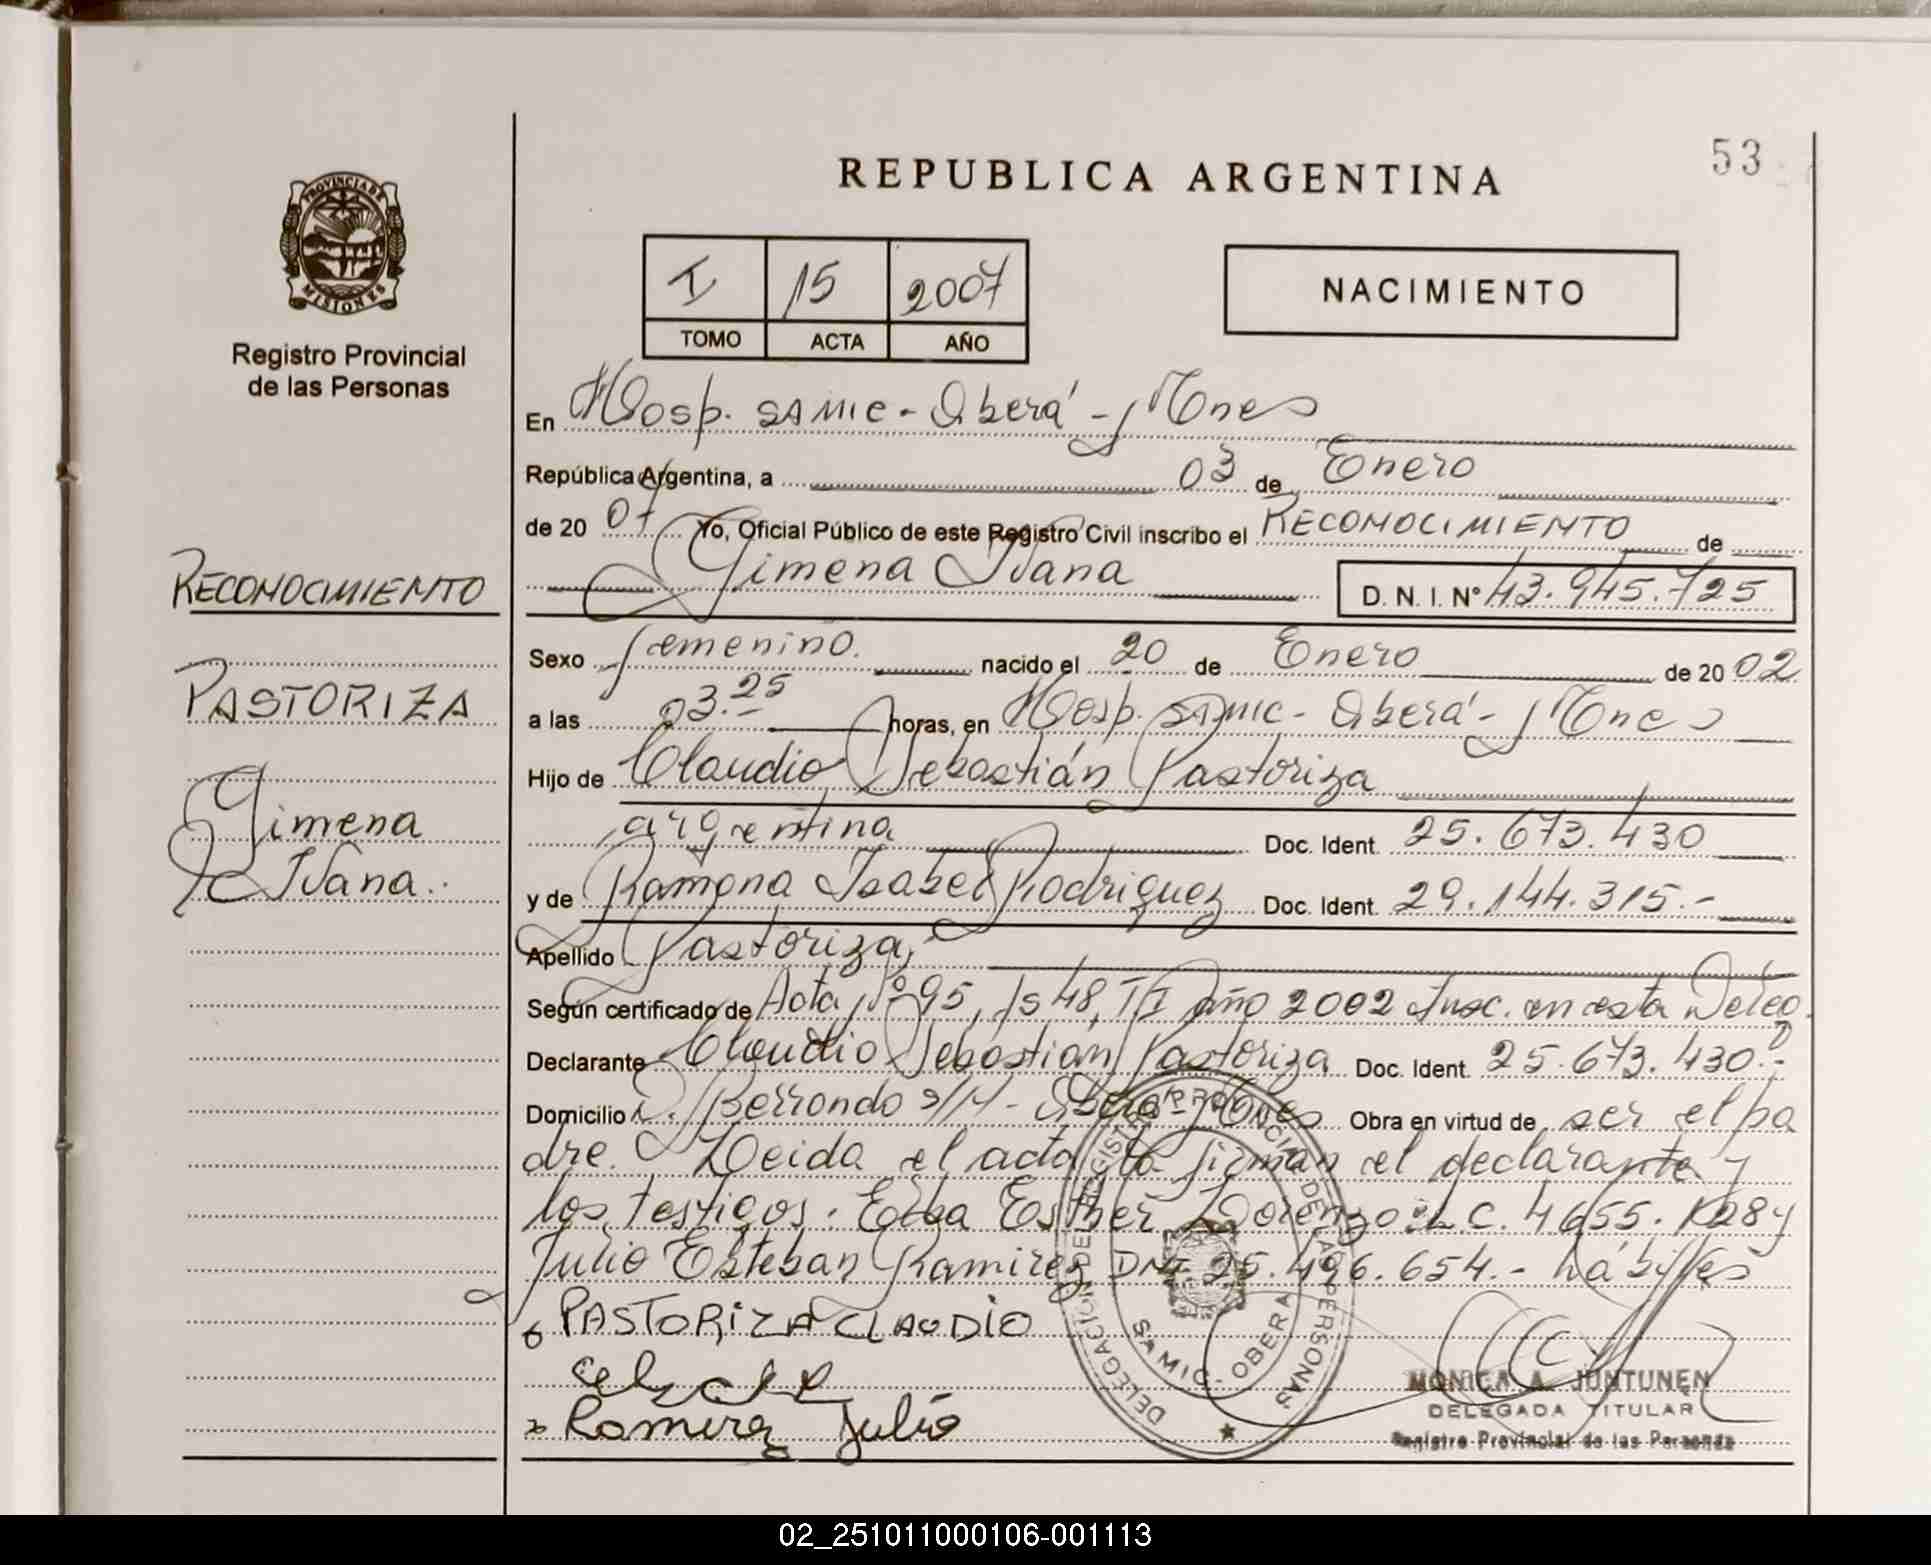 53
REPUBLICA ARGENTINA
PROVINCIA DE
MISIONES
Registro Provincial
de las Personas
I 15 2007
TOMO ACTA AÑO
NACIMIENTO
En Hosp. SAMIC - Oberá - Mnes
República Argentina, a 03 de Enero
de 20 07 Yo, Oficial Público de este Registro Civil inscribo el RECONOCIMIENTO de
Gimena Ivana D. N. I. Nº 43.945.725
Sexo femenino. nacido el 20 de Enero de 20 02
a las 03.25 horas, en Hosp. SAMIC - Oberá - Mnes
Hijo de Claudio Sebastián Pastoriza
argentina Doc. Ident. 25.673.430
y de Ramona Isabel Rodriguez Doc. Ident. 29.144.315.-
Apellido Pastoriza,-
Según certificado de Acta Nº 95, fs 48, T I año 2002 Insc. en esta Deleg.
Declarante Claudio Sebastián Pastoriza Doc. Ident. 25.673.430.-
Domicilio Berrondo s/N - Oberá - Mnes Obra en virtud de ser el pa
dre. Leida el acta la firman el declarante y
los testigos. Elba Esther Lorenzo L.C. 4.655.128 y
Julio Esteban Ramirez DNI 25.496.654.- hábiles
PASTORIZA CLAUDIO
Ramirez Julio
RECONOCIMIENTO
PASTORIZA
Gimena
Ivana.
DELEGACION DEL REGISTRO PROVINCIAL DE LAS PERSONAS
SAMIC - OBERA
MONICA A. JUNTUNEN
DELEGADA TITULAR
Registro Provincial de las Personas
02_251011000106-001113